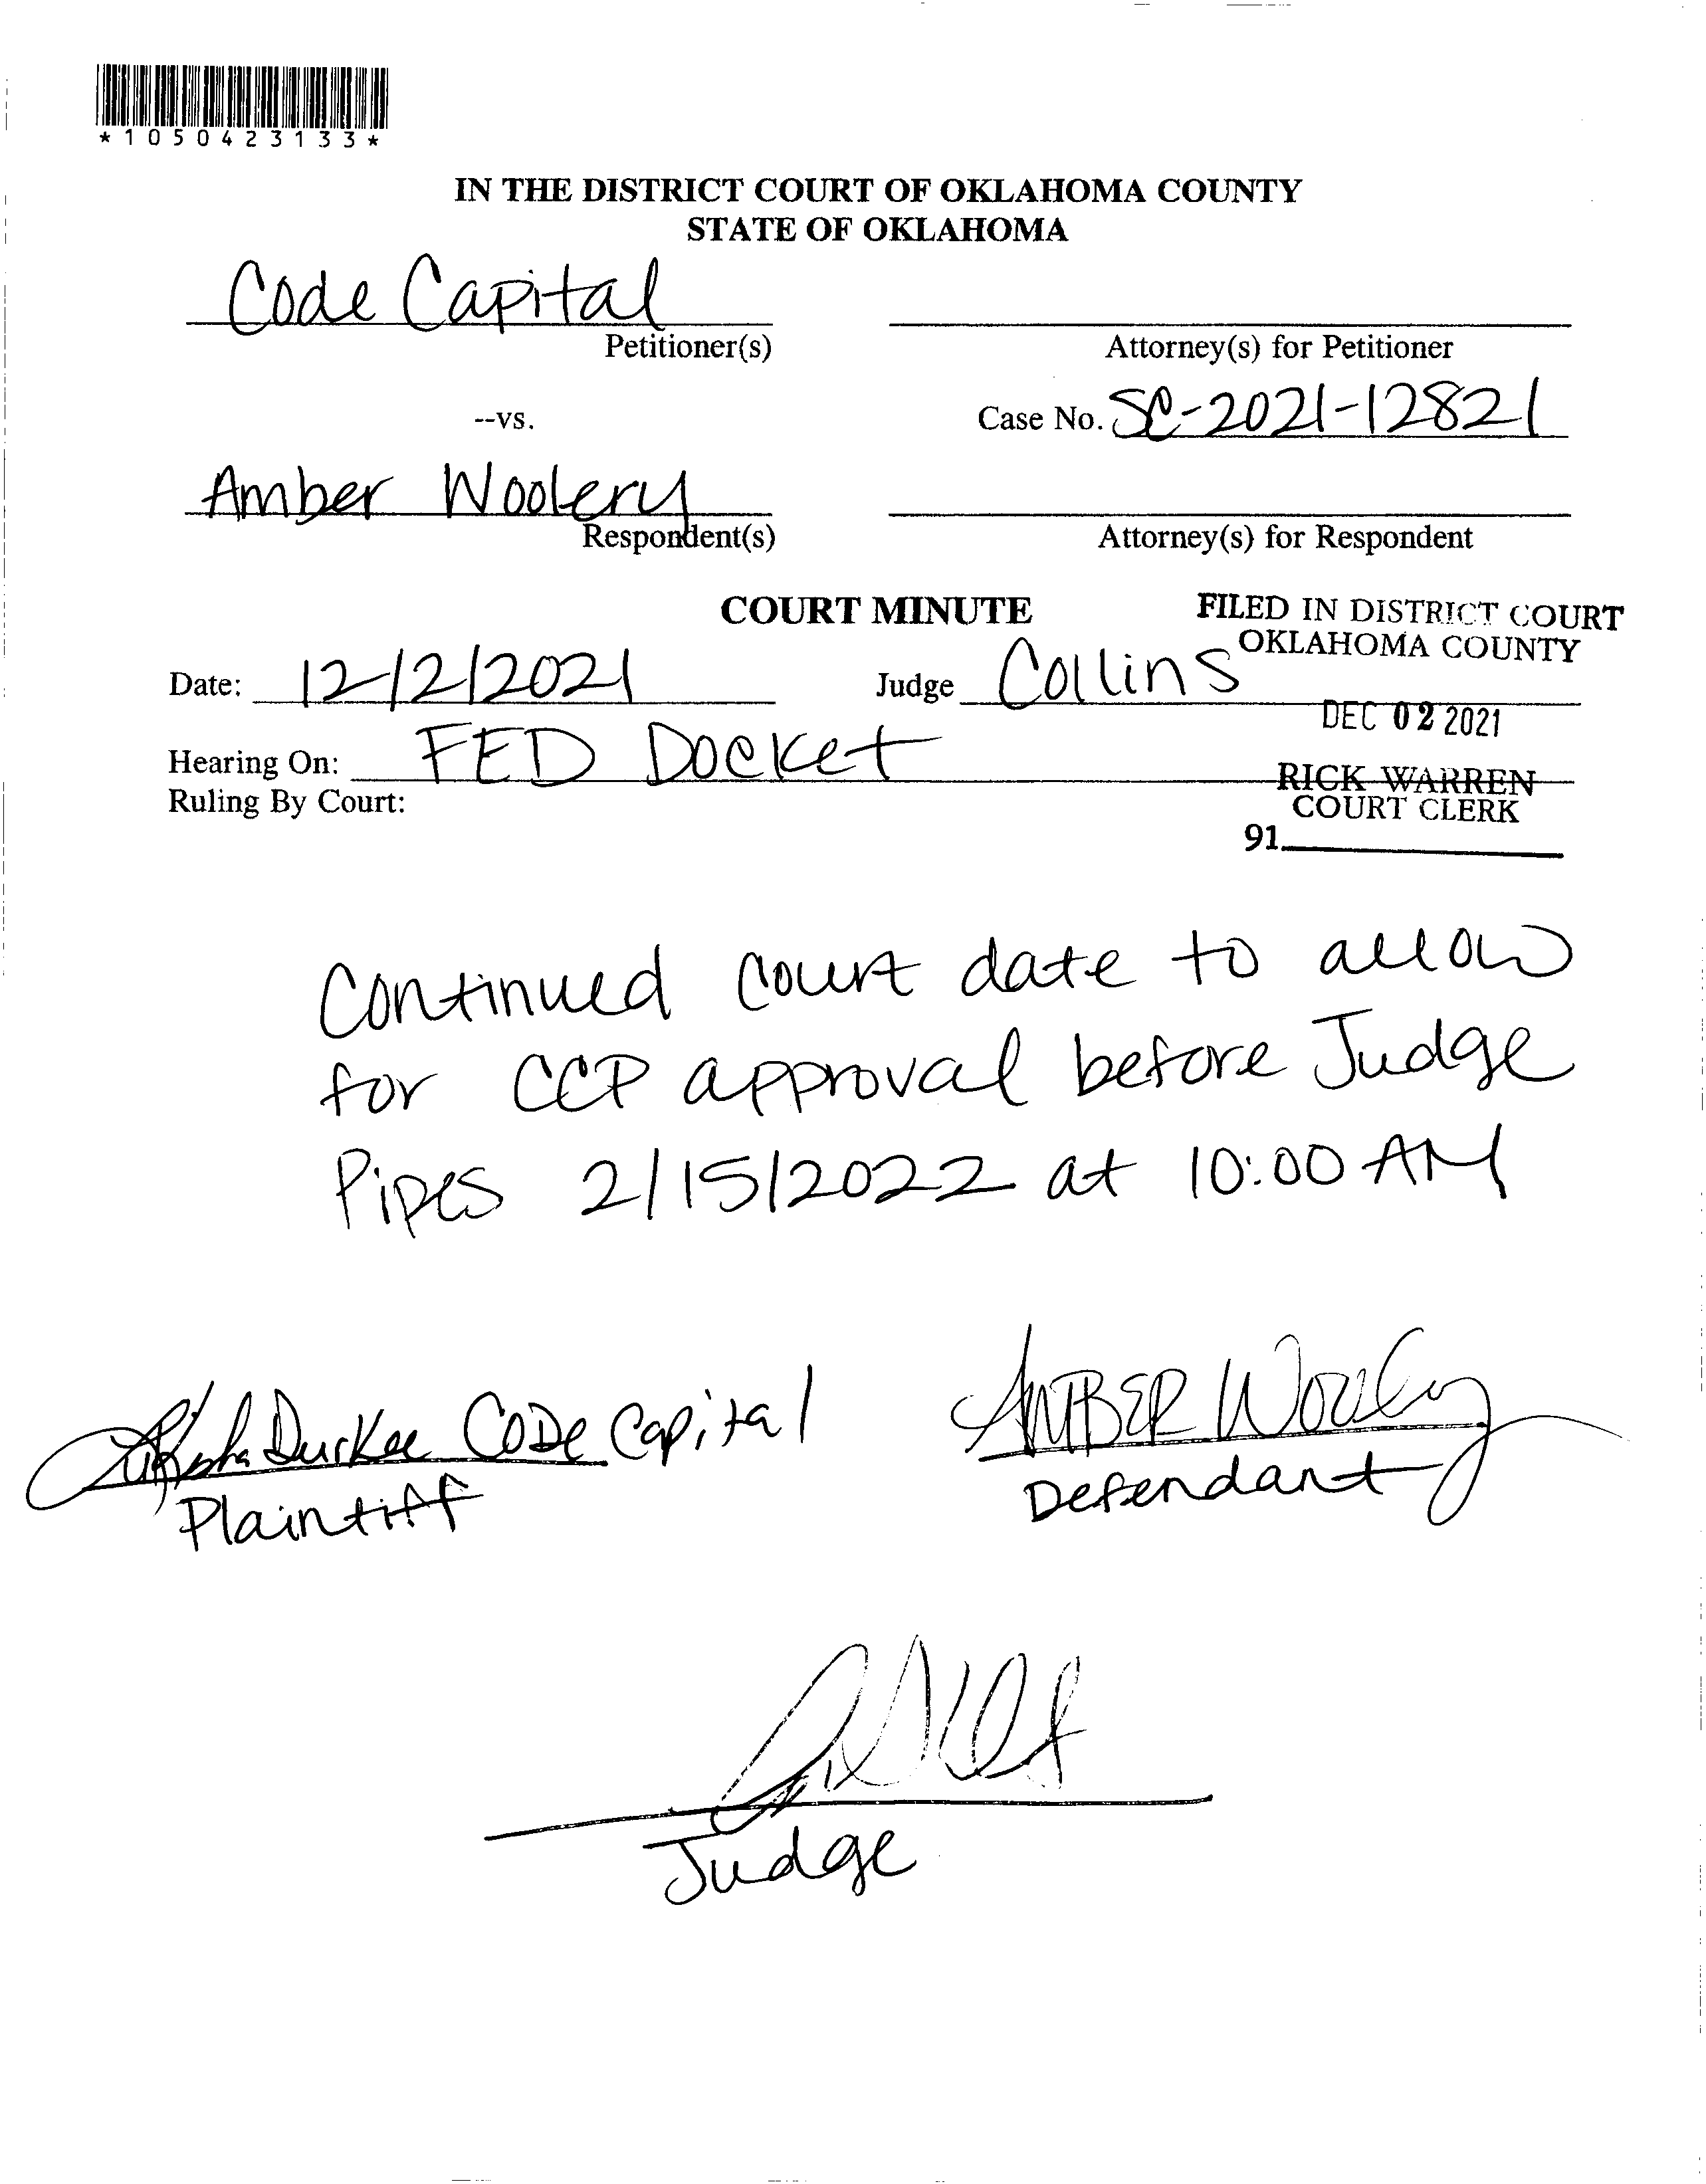 *1050423133*
IN THE DISTRICT COURT OF OKLAHOMA COUNTY
STATE OF OKLAHOMA
Code Capital
Petitioner(s)
Attorney(s) for Petitioner
--vs.
Case No. SC-2021-12821
Amber Woolery
Respondent(s)
Attorney(s) for Respondent
COURT MINUTE
FILED IN DISTRICT COURT
OKLAHOMA COUNTY
Date: 12/2/2021
Judge Collins
DEC 02 2021
Hearing On: FED Docket
RICK WARREN
COURT CLERK
Ruling By Court:
91
Continued court date to allow
for CCP approval before Judge
Pipes 2/15/2022 at 10:00 AM
Durkee CODe Capital
Plaintiff
AMBER Woolery
Defendant
Judge